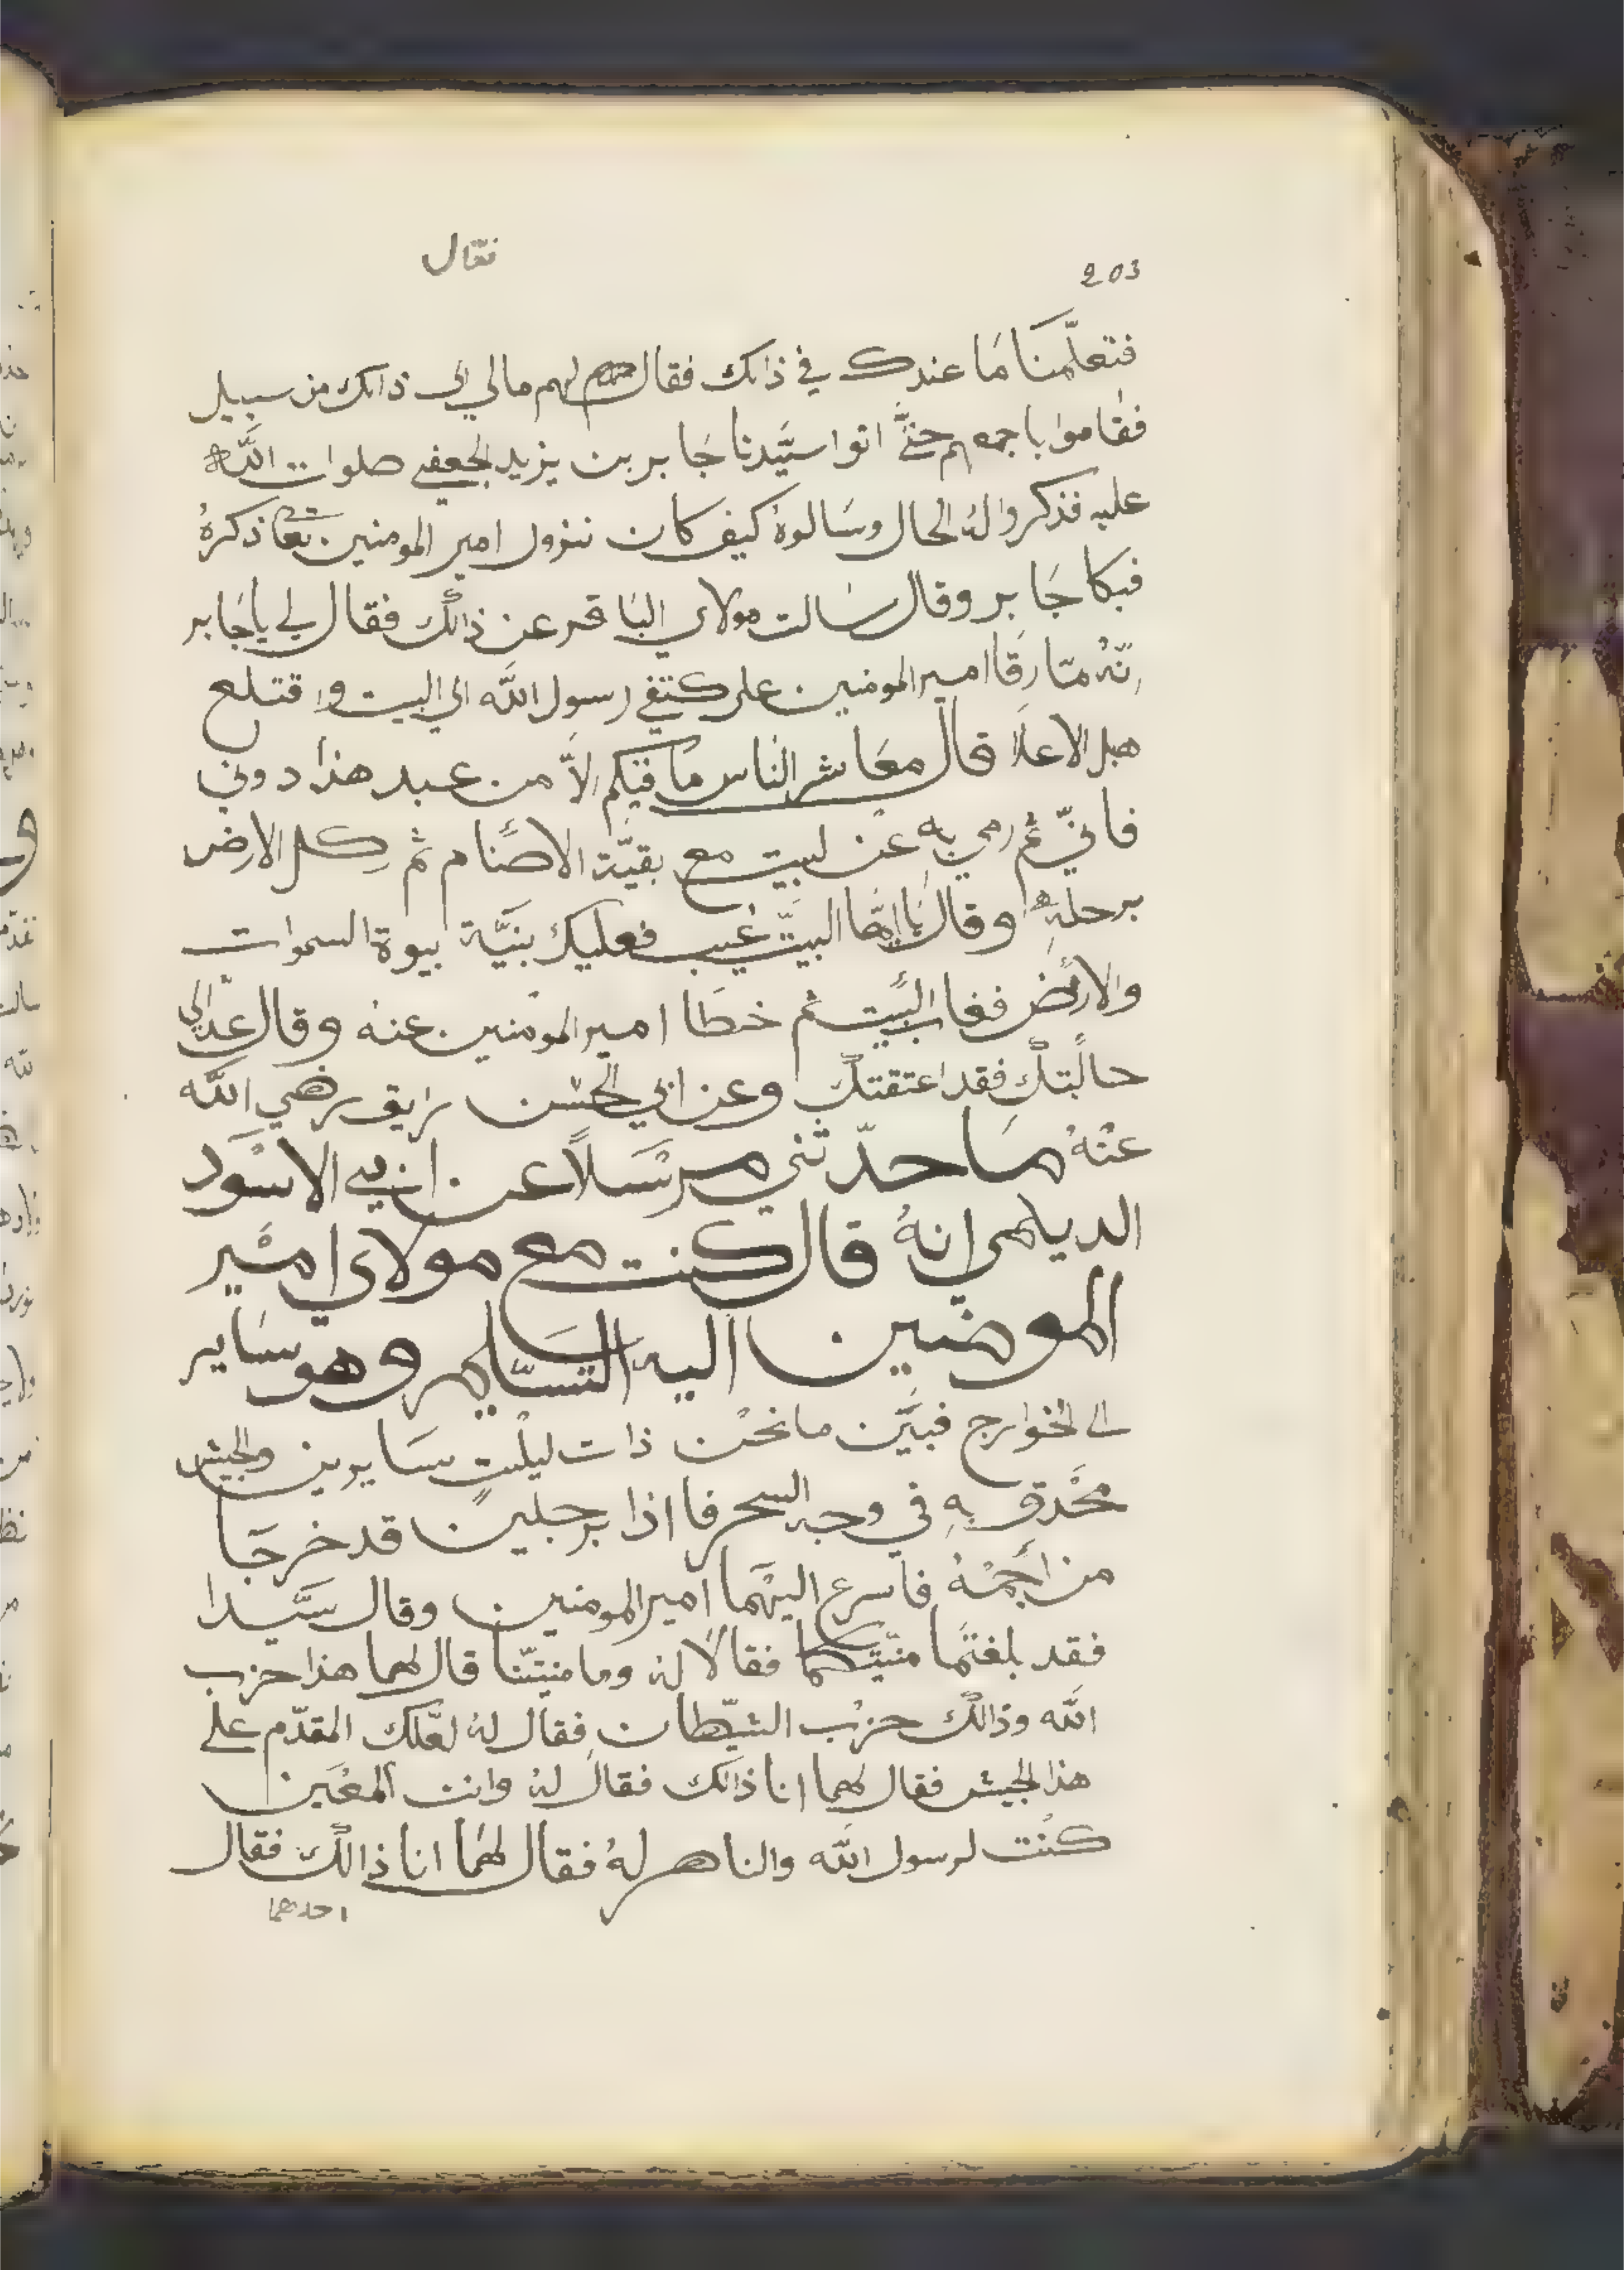 فقال
203
فتعلّمنَا مَا عندك في ذالك فقال لهم مالي الى ذالك من سبيل
فقاموا باجمعهم حتَّى اتوا سيَّدنا جَابر بن يزيد الجعفي صلوات اللَّه
عليه فذكروا لهُ الحال وسَالوهُ كيف كان نزول امير المومنين تعا ذكرهُ
فبكا جَابر وقال سَالت مولاي البَاقر عن ذالك فقال لي ياجَابر
انّهُ متا رقَا امير المومنين على كتفي رسول اللَّه الي البيت واقتلع
هبل الاعلَا قال معَاشر النَاس مَا فيكم الاَّ من عبد هذا دوني
فانّي ثم رمي بهِ عن لبيت مع بقيَّة الاصنَام ثم ركل الارض
برجلهِ وقال يَاايهَّا البيتّ غيب فعليك بنيَّة بيوة السموات
والارض فغاب البيت ثم خطَا امير المومنين عنهُ وقال عد الي
حالتك فقد اعتقتك وعن ابي الحسن رايق رضي اللَّه
عنْهُ مَا حدّثني مرسَلاً عن ابي الاسْوَد
الديلمي انهُ قال كنت مع مولاي امير
المومنين اليه التسَّليم وهو سَاير
الى الخوارج فبيَّن ما نحْن ذات ليلتٍ سَايرين والجيش
محْدق بهِ في وجه السحر فا اذا برجلين قد خرجَا
من اجمْهُ فاسرع اليهمَا امير المومنين وقال سيَّدا
فقد بلغتمَا منيّتكما فقالا لهُ وما منيتّنا قال لهما هذا حزب
اللَّه وذالك حزب الشيّطان فقال لهُ لعَّلك المقدّم على
هذا الجيش فقال لهما انا ذالك فقال لهُ وانت المعَين
كنْت لرسول اللَّه والناصر لهُ فقال لهمَا انا ذالك فقال
احدهما